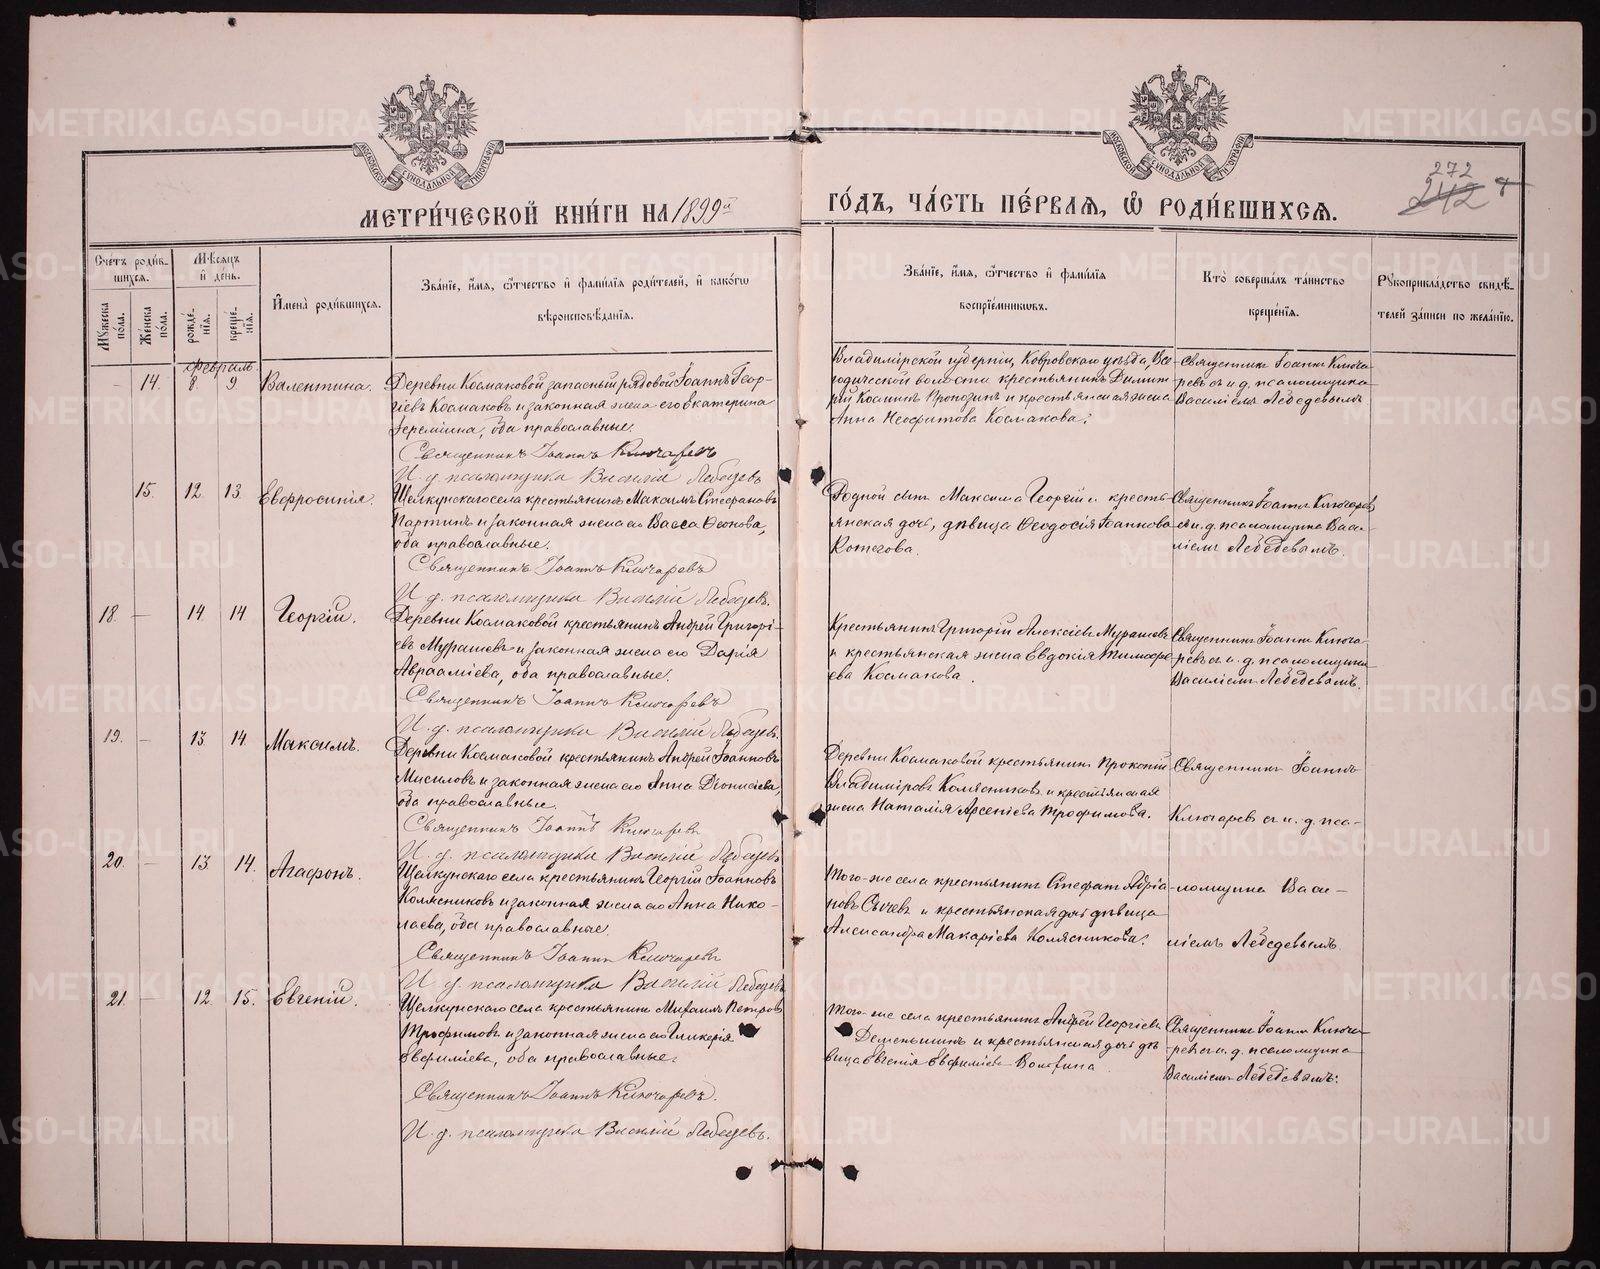 272
242
МЕТРИ́ЧЕСКОЙ КНИ́ГИ НА 1899й ГО́ДЪ, ЧА́СТЬ ПЕ́РВАѦ, Ѽ РОДИ́ВШИХСѦ.
Сче́тъ роди́в-
шихся.
Мѣ́сяцъ
и҆ де́нь.
И҆мена̀ роди́вшихся.
Зва́нїе, и҆́мя, ѻ҆́тчество и҆ фами́лїя роди́телей, и҆ како́гѡ
вѣроисповѣ́данїя.
Зва́нїе, и҆́мя, ѻ҆́тчество и҆ фами́лїя
воспрїе́мниковъ.
Кто̀ соверша́лъ та́инство
креще́нїя.
Рꙋкоприкла́дство свидѣ́-
телей за́писи по жела́нїю.
Мꙋ́жеска
по́ла.
Же́нска
по́ла.
рожде́-
нїя.
креще́-
нїя.
февраль
14. 8. 9 Валентина.
Деревни Космаковой запасный рядовой Іоаннъ Геор-
гіевъ Космаковъ и законная жена его Екатерина
Іереміина, оба православные.
Священникъ Іоаннъ Ключаревъ
И. д. псаломщика Василій Лебедевъ
Владимірской губерніи, Ковровскаго уѣзда, Все-
крестьянинъ Димит-
рій Космин и крестьянская жена
Анна Неофитова Космакова.
Священникъ Іоаннъ Ключа-
ревъ съ и. д. псаломщика
Василіемъ Лебедевымъ
15. 12 13. Евфросинія.
Щелкунскаго села крестьянинъ Максимъ Стефановъ
Партинъ и законная жена его Васса
оба православные.
Священникъ Іоаннъ Ключаревъ
И. д. псаломщика Василій Лебедевъ.
Родной сынъ Максима Георгій и кресть-
янская дочь, дѣвица Ѳеодосія Іоаннова
Котегова.
Священникъ Іоаннъ Ключаревъ
съ и. д. псаломщика Васи-
ліемъ Лебедевымъ.
18. — 14 14 Георгій.
Деревни Космаковой крестьянинъ Андрей Григорі-
евъ Мурашовъ и законная жена его Дарія
Авраамíева, оба православные.
Священникъ Іоаннъ Ключаревъ
И. д. псаломщика Василій Лебедевъ.
Крестьянинъ Григорій Алексіевъ Мурашевъ
и крестьянская жена Евдокія Тимофе-
ева Космакова.
Священникъ Іоаннъ Ключа-
ревъ съ и. д. псаломщика
Василіемъ Лебедевымъ.
19. — 13. 14. Максимъ.
Деревни Космаковой крестьянинъ Андрей Іоанновъ
Мисиловъ и законная жена его Анна Діонисіева,
оба православные.
Священникъ Іоаннъ Ключаревъ
И. д. псаломщика Василій Лебедевъ
Деревни Космаковой крестьянинъ Прокопій
Владиміровъ Колясниковъ и крестьянская
жена Наталія Арсеніева Трофимова.
Священникъ Іоаннъ
Ключаревъ съ и. д. пса-
20. — 13 14. Агафонъ.
Щелкунскаго села крестьянинъ Георгій Іоанновъ
Колясниковъ и законная жена его Анна Нико-
лаева, оба православные.
Священникъ Іоаннъ Ключаревъ
И. д. псаломщика Василій Лебедевъ
Того-же села крестьянинъ Стефанъ Адріа-
новъ Сычевъ и крестьянская дочь дѣвица
Александра Макаріева Колясникова.
ломщика Васи-
ліемъ Лебедевымъ.
21. — 12. 15. Евгеній.
Щелкунскаго села крестьянинъ Михаилъ Петровъ
Трофимовъ и законная жена его Гликерія
Евфиміева, оба православные.
Священникъ Іоаннъ Ключаревъ.
И. д. псаломщика Василій Лебедевъ.
Того-же села крестьянинъ Андрей Георгіевъ
Деменьшинъ и крестьянская дочь дѣ-
вица Евгенія Евфиміева
Священникъ Іоаннъ Ключа-
ревъ съ и. д. псаломщика
Василіемъ Лебедевымъ.
METRIKI.GASO-URAL.RU